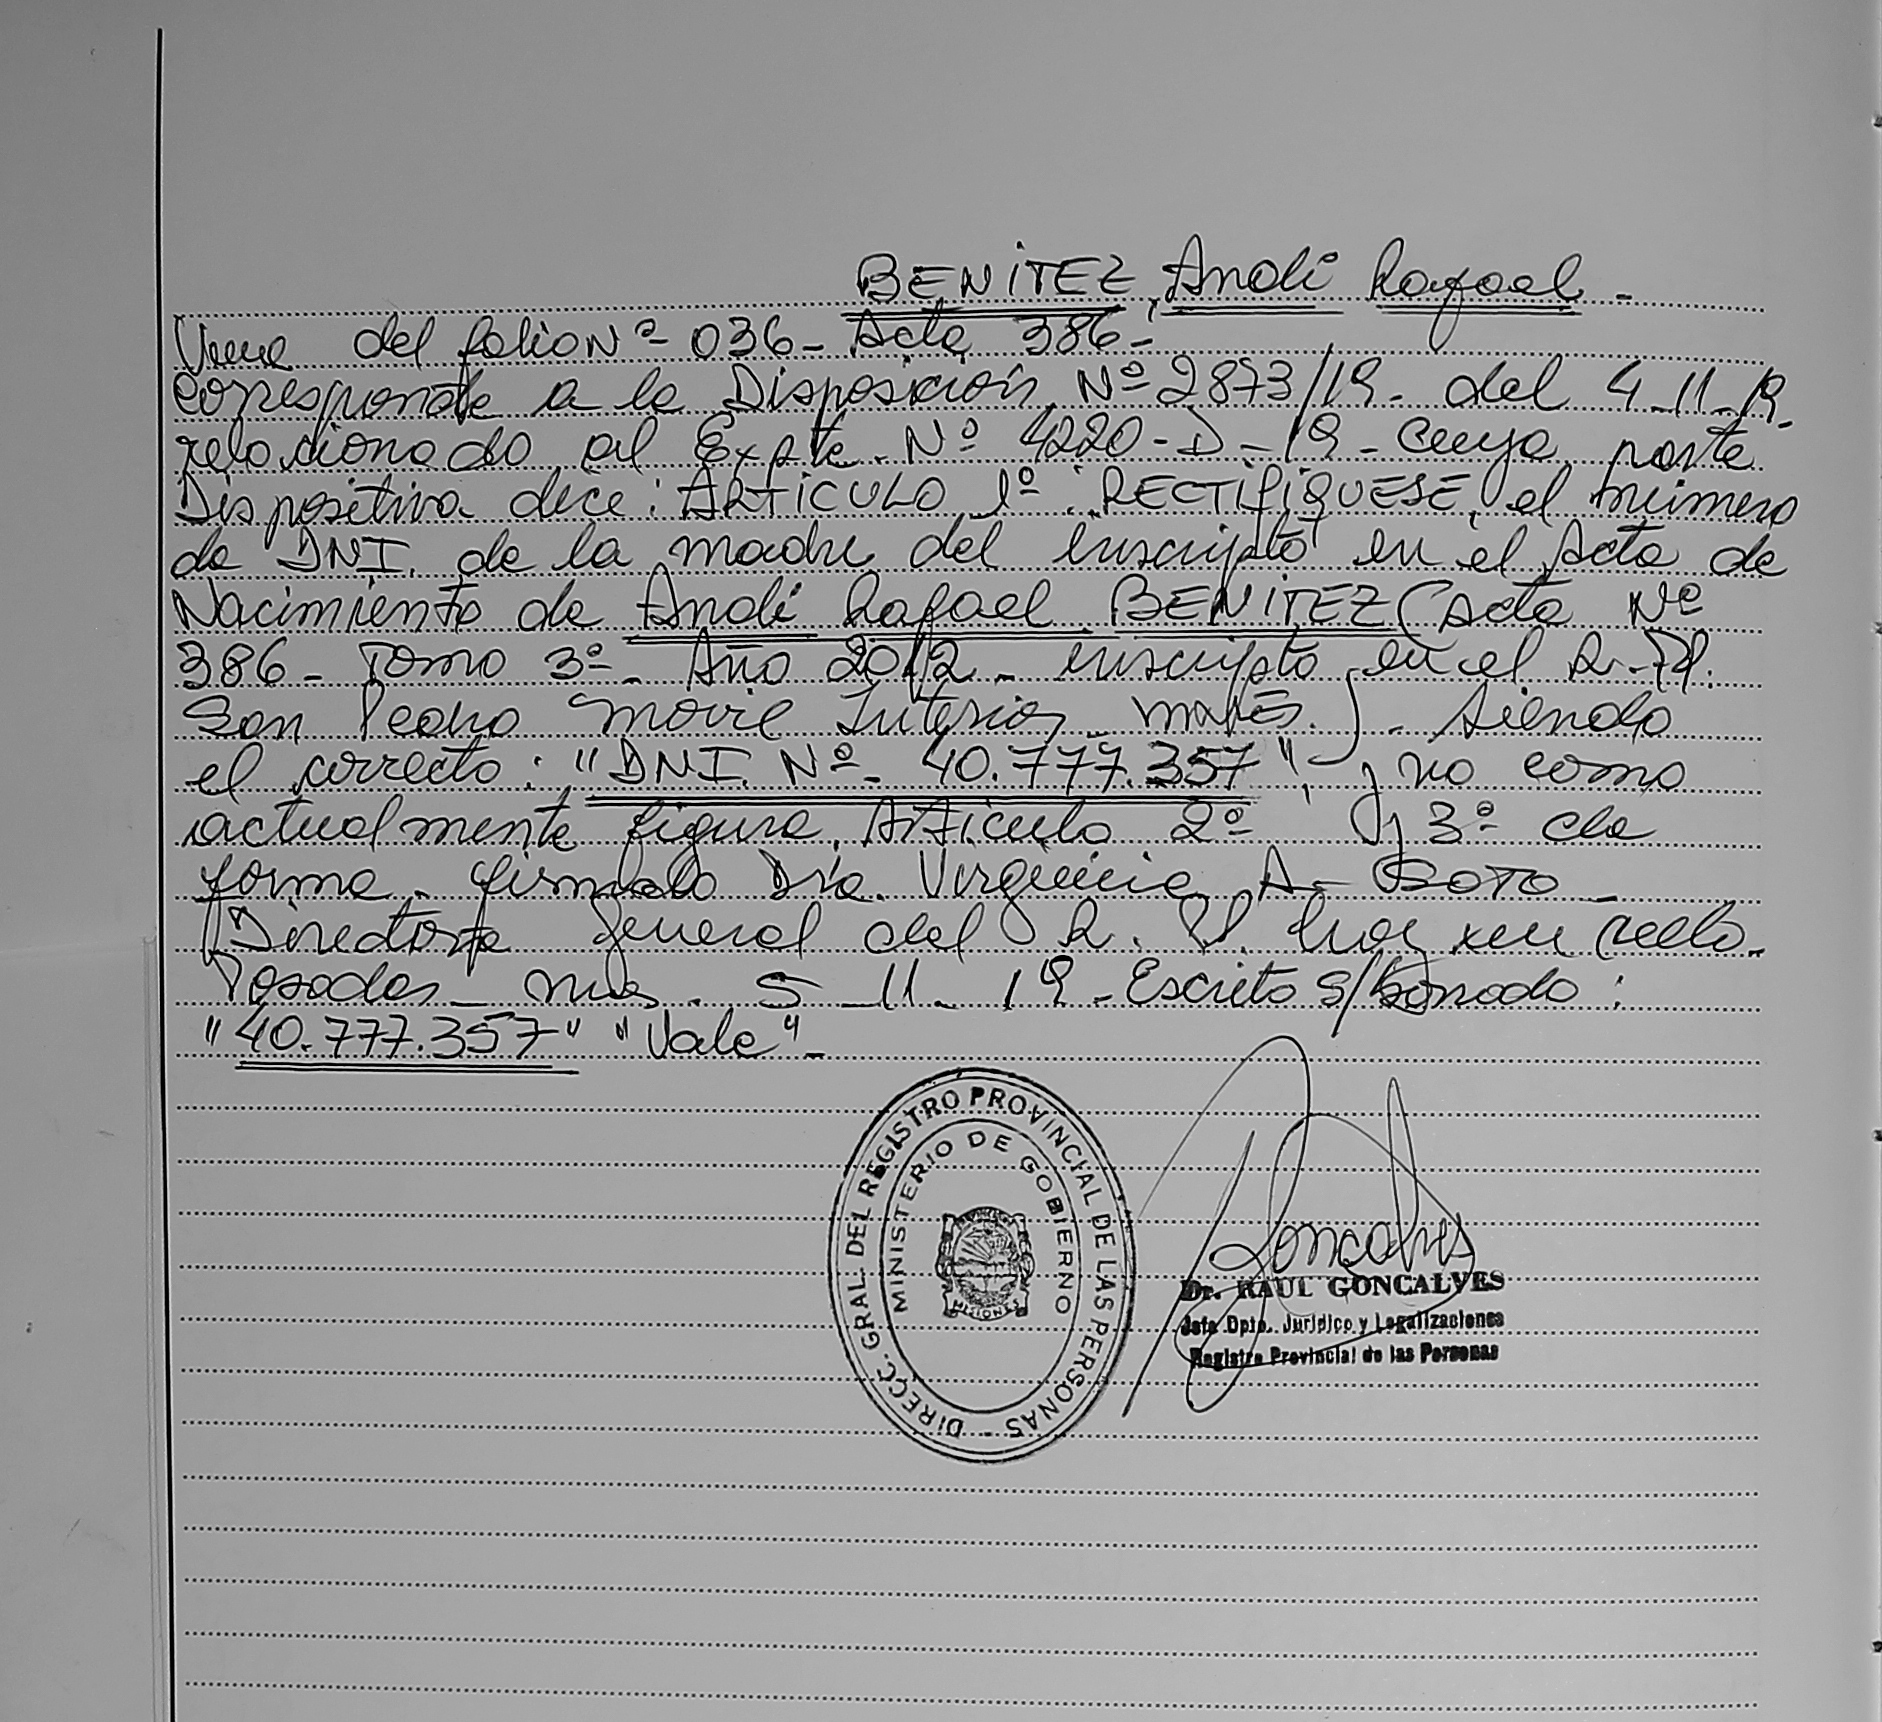 BENITEZ, Andi Rafael.-
Viene del folio Nº 036- Acta 386-
Corresponde a la Disposición Nº 2873/19. del 4-11-19.
relacionado al Expte. Nº 4220-D-19- cuya parte
Dispositiva dice: ARTICULO 1º: RECTIFIQUESE, el número
de DNI. de la madre del inscripto en el Acta de
Nacimiento de Andi Rafael BENITEZ (Acta Nº
386- Tomo 3º- Año 2012- inscripto en el R.-P.
San Pedro Movil Interior
siendo
el correcto: "DNI. Nº. 40.777.357", y no como
actualmente figura. Articulo 2º y 3º de
forma. firmado Dra. Virginia A- BOTO-
Directora General del R. P. hay un sello.
Posadas- Mnes. 5-11-19- Escrito s/borrado:
"40.777.357" "Vale"-
DIRECC. GRAL. DEL REGISTRO PROVINCIAL DE LAS PERSONAS -
MINISTERIO DE GOBIERNO
MISIONES
Goncalves
Dr. RAUL GONCALVES
Jefe Dpto. Jurídico y Legalizaciones
Registro Provincial de las Personas